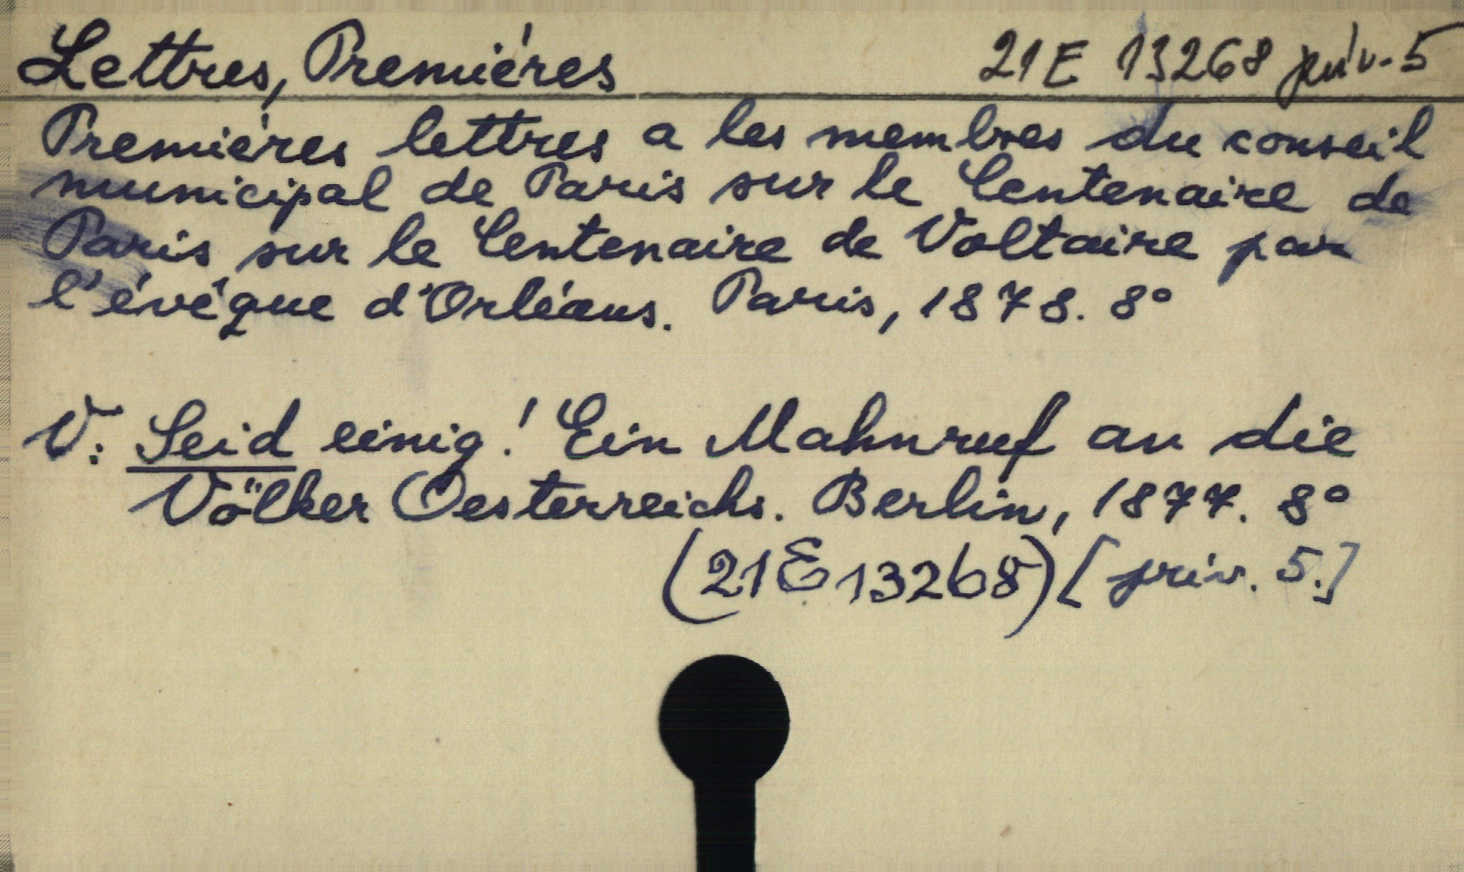 Lettres, Premiéres 21 E 13268 priv. 5
Premiéres lettres a les membres du conseil
municipal de Paris sur le Centenaire de
Paris sur le Centenaire de Voltaire par
l'évéque d'Orléans. Paris, 1878. 8°
V: Seid einig! Ein Mahnruf an die
Völker Oesterreichs. Berlin, 1877. 8°
(21 E 13268) [priv. 5.]